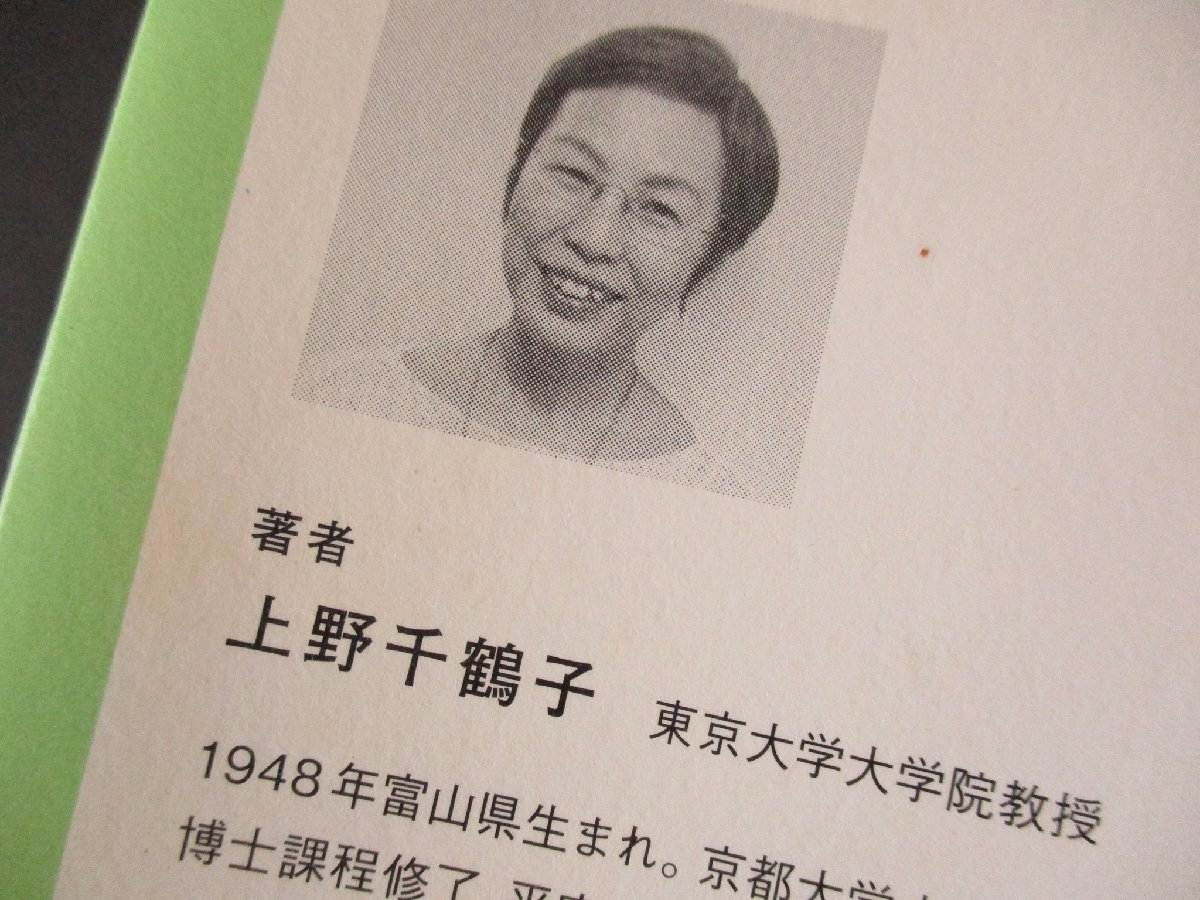 著者
上野千鶴子 東京大学大学院教授
1948年富山県生まれ。京都大学
博士課程修了